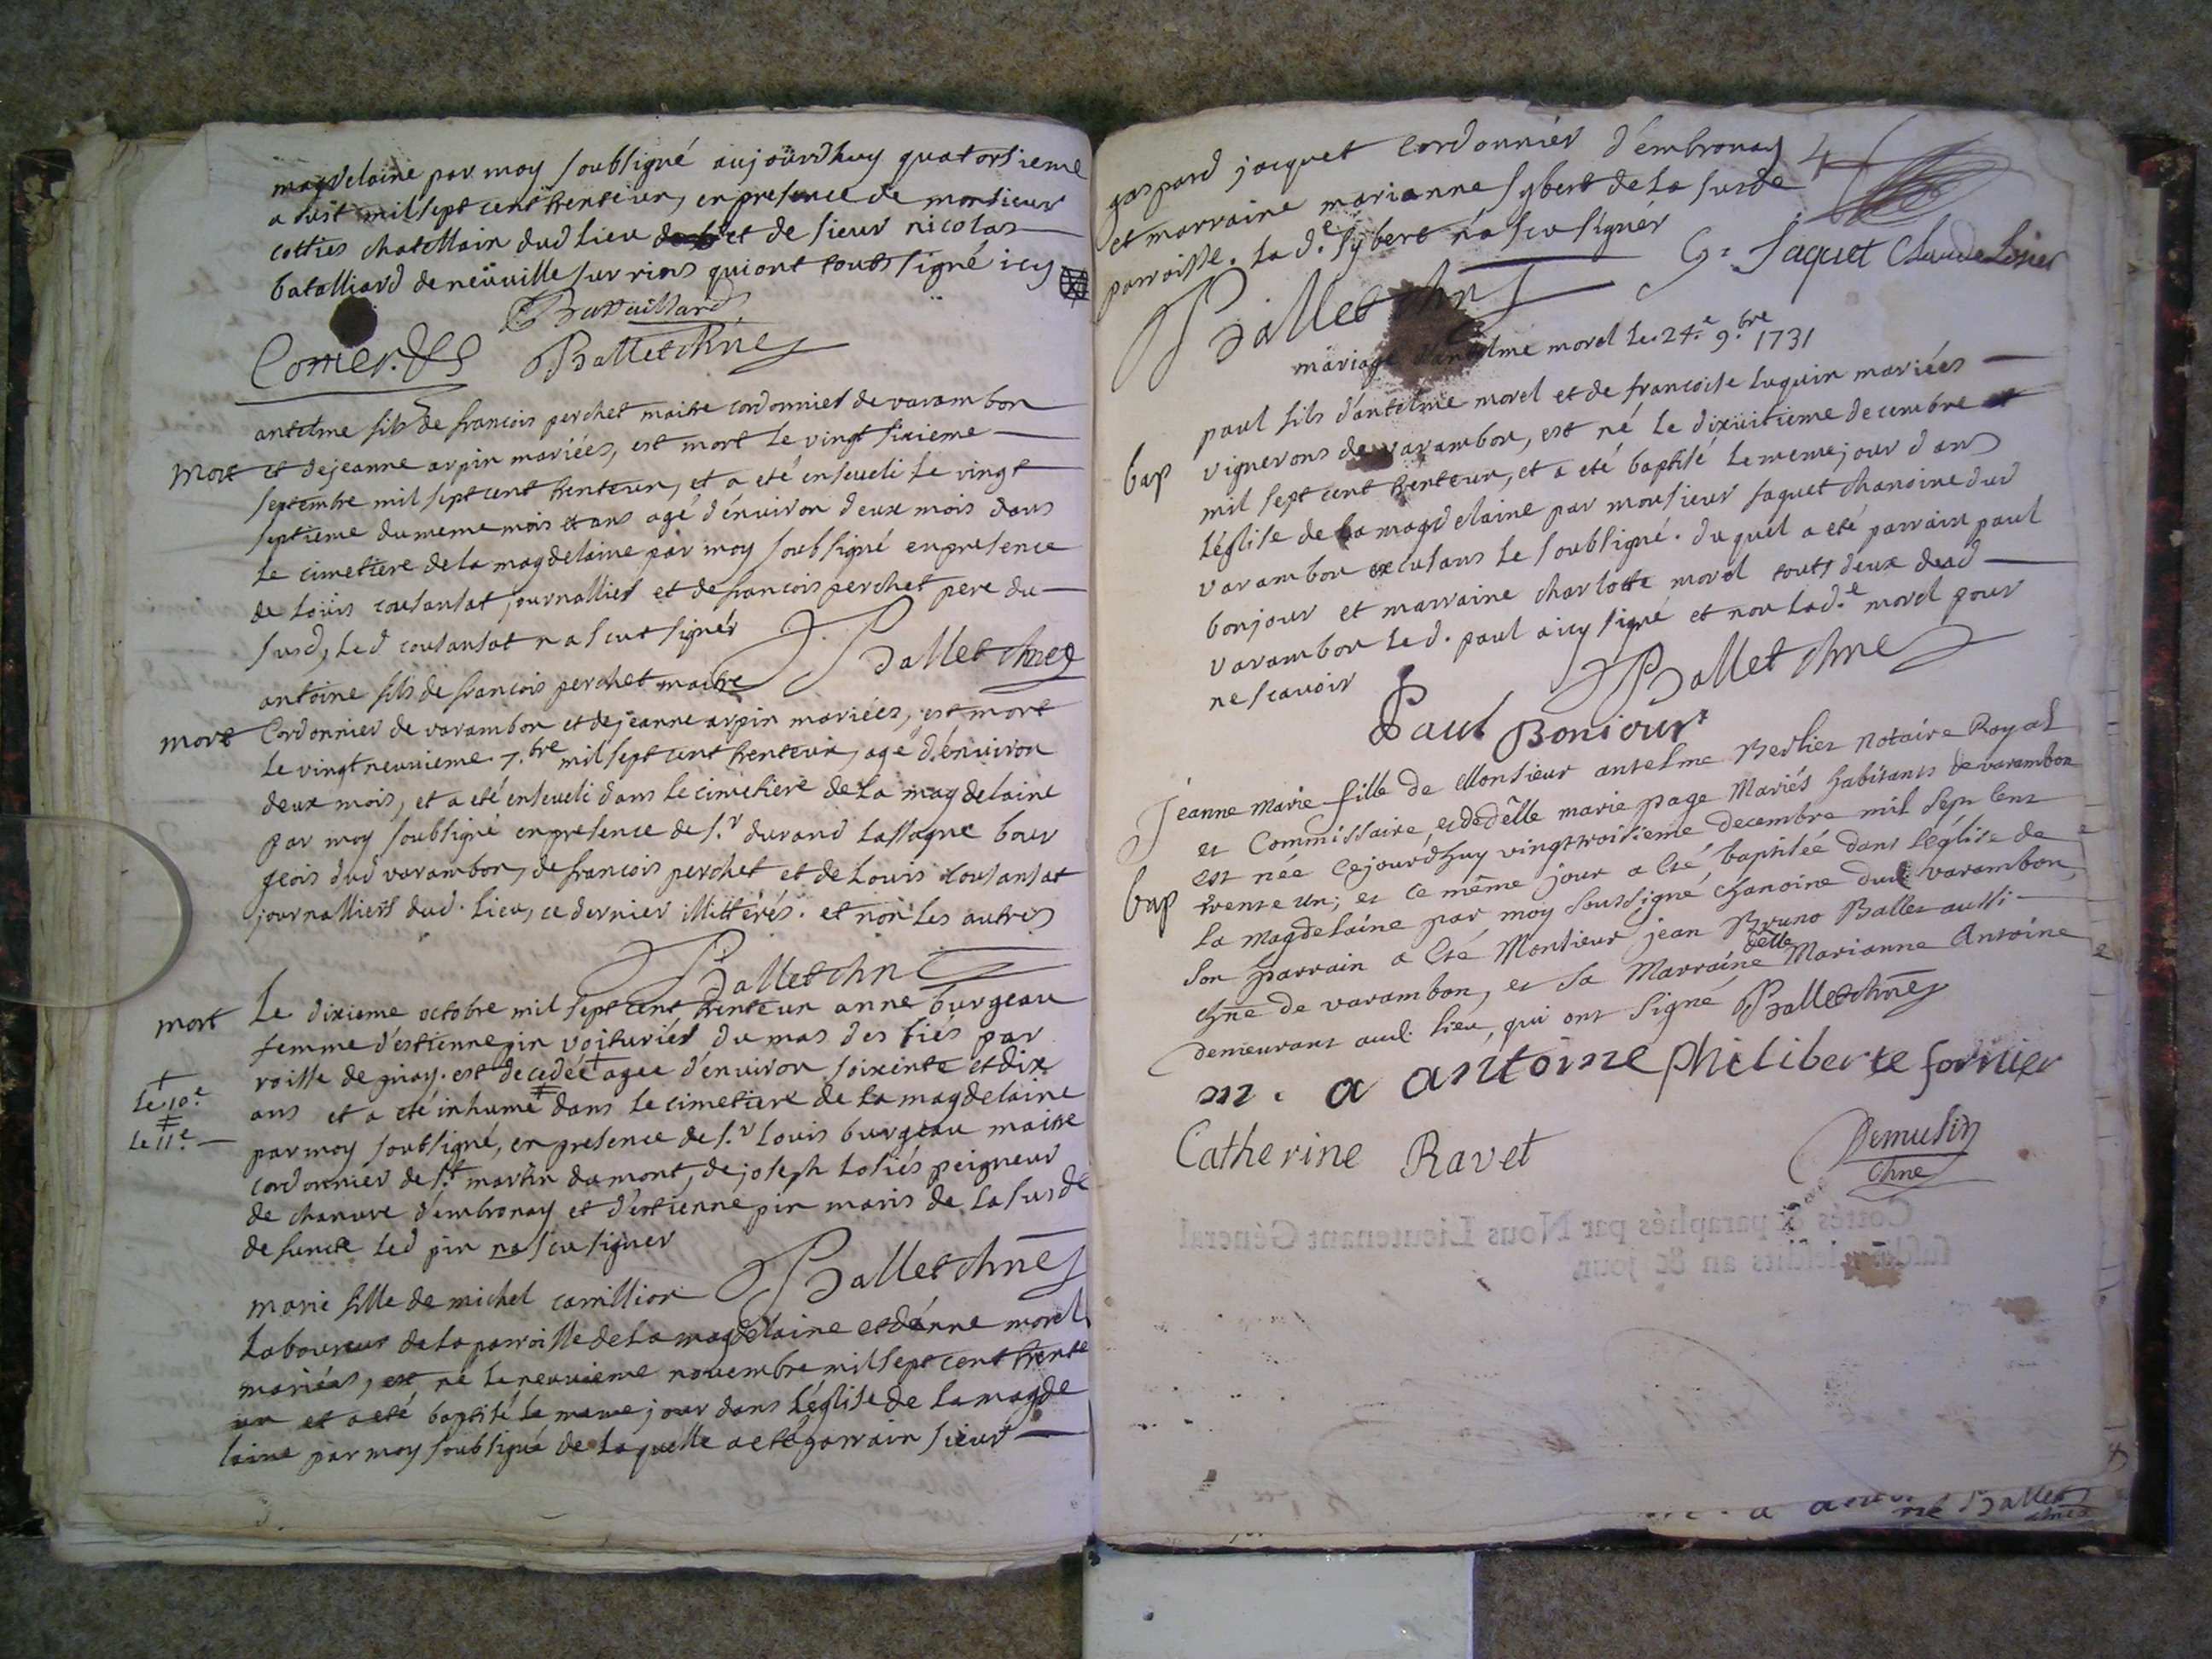 magdelaine par moy soubsigné aujourdhuy quatorsieme
aoust mil sept cent trenteun, en presence de monsieur
cottier chatellain dud lieu et de sieur nicolas
batalliard de neuville sur rins qui ont touts signé icy
Battaillard
Cottier. Balletchne
antelme fils de francois perchet maitre cordonnier de varambon
mort et de jeanne arpin mariées, est mort le vingt sixieme
septembre mil sept cent trenteun, et a eté enseveli le vingt
septieme du meme mois et ans agé d'énviron deux mois dans
le cimetiere de la magdelaine par moy soubsigné en presence
de loüis cousansat journallier et de francois perchet pere du
susd, led cousansat na scut signér
Ballet chne
antoine fils de francois perchet maitre
mort Cordonnier de varambon et de jeanne arpin mariées, est mort
le vingt neuvieme 7.bre mil sept cent trenteun, age d'énviron
deux mois, et a eté enseveli dans le cimetiere de la magdelaine
par moy soubsigné en presence de s.r durand lassagne bour
geois dud varambon, de francois perchet et de Louis cousansat
journalliers dud. lieu, ce dernier illittérés. et non les autres
Balletchne
mort Le dixieme octobre mil sept cent trenteun anne burgeau
femme d'éstienne pin voiturier du mas des liés par
roisse de . est decedée + agee d'énviron soixente et dix
le 10.e
ans et a eté inhumé ‡ dans le cimetiere de la magdelaine
le 11.e
par moy soubsigné, en presence de s.r Louis burgeau maitre
cordonnier de s.t martin du mont, de joseph losiés peigneur
de chanvre d'émbronay et d'éstienne pin maris de la susde
defuncte led pin na scu signer
Ballet chne
marie fille de michel carrillion
laboureur de la parroisse de la magdelaine et d'ánne morel
mariées, est né le neuvieme novembre mil sept cent trente
un et a eté baptisé le meme jour dans l'église de la magde
laine par moy soubsigné de laquelle a eté parrain sieur
gaspard jacquet cordonnier d'émbronay 4
et marraine marianne sybert de la susde
parroisse. lad.e sybert na scu signér
G. Jaquet Claude Losier
Ballet chne
mariage d'antelme morel le 24.e 9.bre 1731
paul fils d'antelme morel et de francoise luquin mariées
bap vignerons de varambon, est né le dixuitieme decembre
mil sept cent trenteun, et a eté baptisé le meme jour dans
l'église de la magdelaine par monsieur jaquet chanoine dud
varambon le soubsigné. duquél a eté parrain paul
bonjour et marraine charlotte morel touts deux dud
varambon led. paul a icy signé et non lad.e morel pour
ne scavoir
Ballet chne
Paul Bonjour
Jeanne Marie fille de Monsieur antelme Berlier Notaire Royal
et Commissaire, et de delle marie page Mariés habitants de varambon
est née cejourd'huy vingt troisieme decembre mil sept cent
bap trente un; et ce même jour a été baptisée dans l'église de
la Magdelaine par moy soussigné chanoine dud varambon,
son parrain a été Monsieur jean Bruno Ballet aussi
chne de varambon, et sa Marraine delle Marianne Antoine
demeurant aud. lieu, qui ont signé Balletchne
m. a antoine philiberte fornier
Catherine Ravet
Demusin
chne
Cottés & paraphés par Nous Lieutenant Général
Ballet
chne